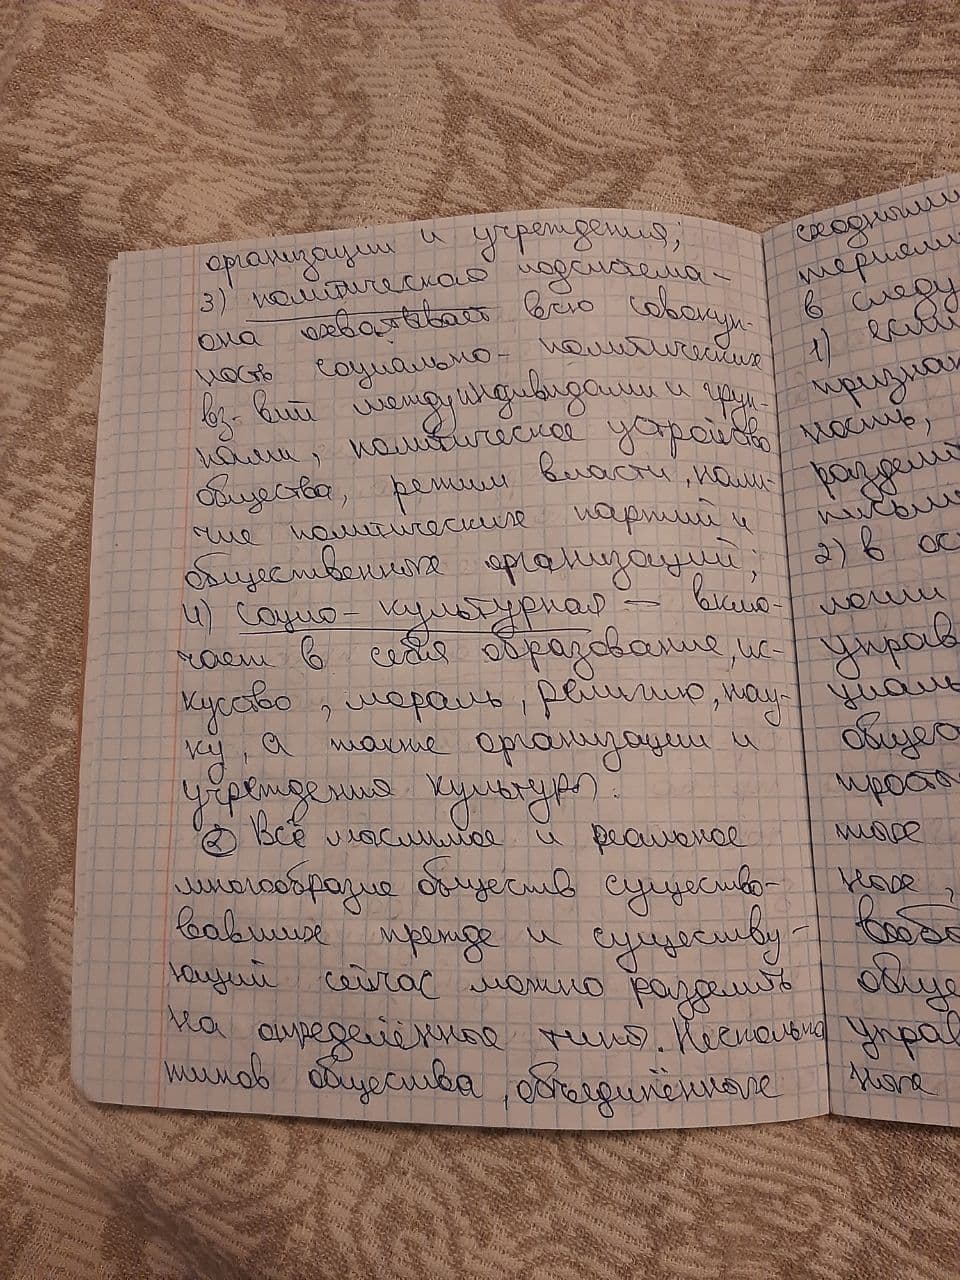 организации и учреждения;
3) политическая подсистема –
она охватывает всю совокуп-
ность социально-политических
вз-вий между индивидами и груп-
пами, политическое устройство
общества, режим власти, нали-
чие политических партий и
общественных организаций;
4) социо-культурная – вклю-
чает в себя образование, ис-
кусство, мораль, религию, нау-
ку, а также организации и
учреждения культуры.
② Всё мыслимое и реальное
многообразие обществ существо-
вавших прежде и существу-
ющий сейчас можно разделить
на определённые типы. Несколько
типов общества, объединённые
сходными
в следу
1) если
признак
ность,
раздели
письме
2) в ос
логии
управ
циаль
общес
просты
ные,
вообщ
обще
управ
ные